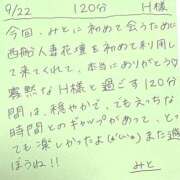 9/22 120分 H様
今回、みとに初めて会うために
西船人妻花壇を初めて利用し
て来てくれて、本当にありがとう
寡黙なH様と過ごす120分
間は、穏やかで、でもえっちな
時間とのギャップがあって、と
っても楽しかったよ(*^^*)また遊
ぼうね!!
みと